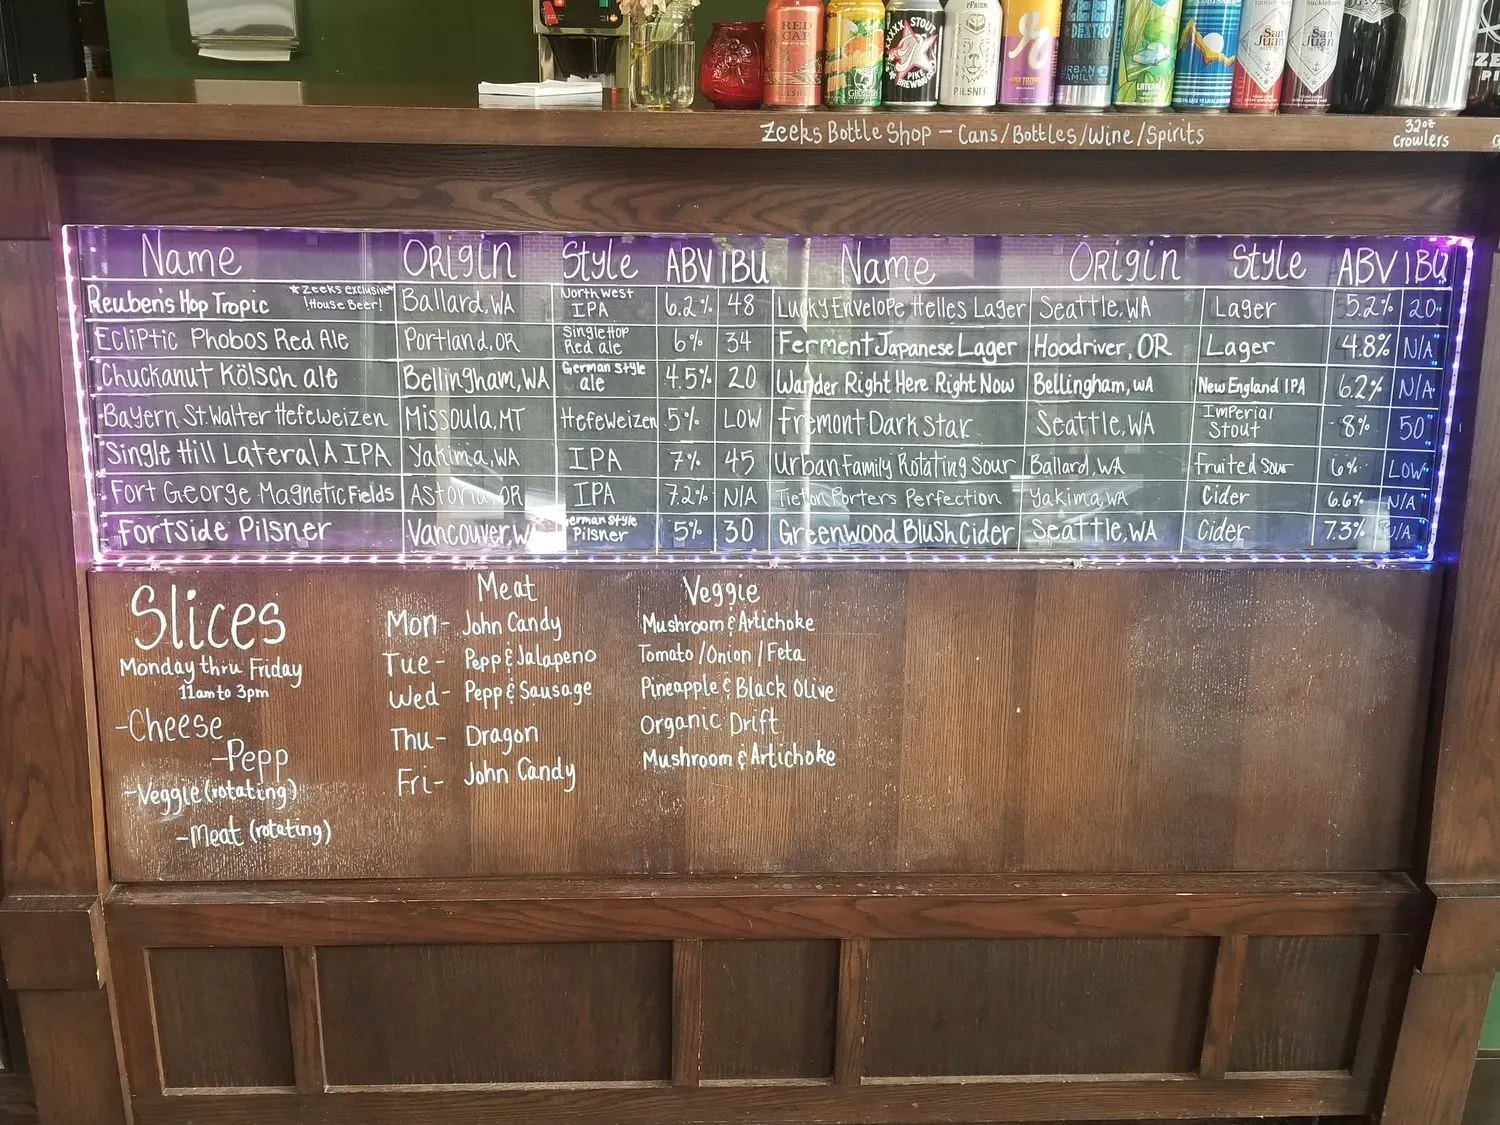 RED CAP
XXXX STOUT
PIKE
BREWING
PFRIEM
PILSNER
HOP TROPIC
DESTROY
URBAN FAMILY
LATERAL
San Juan
San Juan
Zeeks Bottle Shop - Cans/Bottles/Wine/Spirits
32oz
Crowlers
Name Origin Style ABV IBU Name Origin Style ABV IBU
Reuben's Hop Tropic *Zeeks Exclusive* House Beer! Ballard, WA North West IPA 6.2% 48 Lucky Envelope Helles Lager Seattle, WA Lager 5.2% 20
Ecliptic Phobos Red Ale Portland, OR Single Hop Red ale 6% 34 Ferment Japanese Lager Hoodriver, OR Lager 4.8% N/A
Chuckanut Kölsch ale Bellingham, WA German Style ale 4.5% 20 Wander Right Here Right Now Bellingham, WA New England IPA 6.2% N/A
Bayern St. Walter Hefeweizen Missoula, MT Hefeweizen 5% LOW Fremont Dark Star Seattle, WA Imperial Stout 8% 50
Single Hill Lateral A IPA Yakima, WA IPA 7% 45 Urban Family Rotating Sour Ballard, WA Fruited Sour 6% Low
Fort George Magnetic Fields Astoria, OR IPA 7.2% N/A Tieton Porters Perfection Yakima, WA Cider 6.6% N/A
Fortside Pilsner Vancouver, W German Style Pilsner 5% 30 Greenwood Blush Cider Seattle, WA Cider 7.3% N/A
Slices
Monday thru Friday
11am to 3pm
-Cheese
-Pepp
-Veggie (rotating)
-Meat (rotating)
Meat Veggie
Mon- John Candy Mushroom & Artichoke
Tue- Pepp & Jalapeno Tomato/Onion/Feta
Wed- Pepp & Sausage Pineapple & Black Olive
Thu- Dragon Organic Drift
Fri- John Candy Mushroom & Artichoke